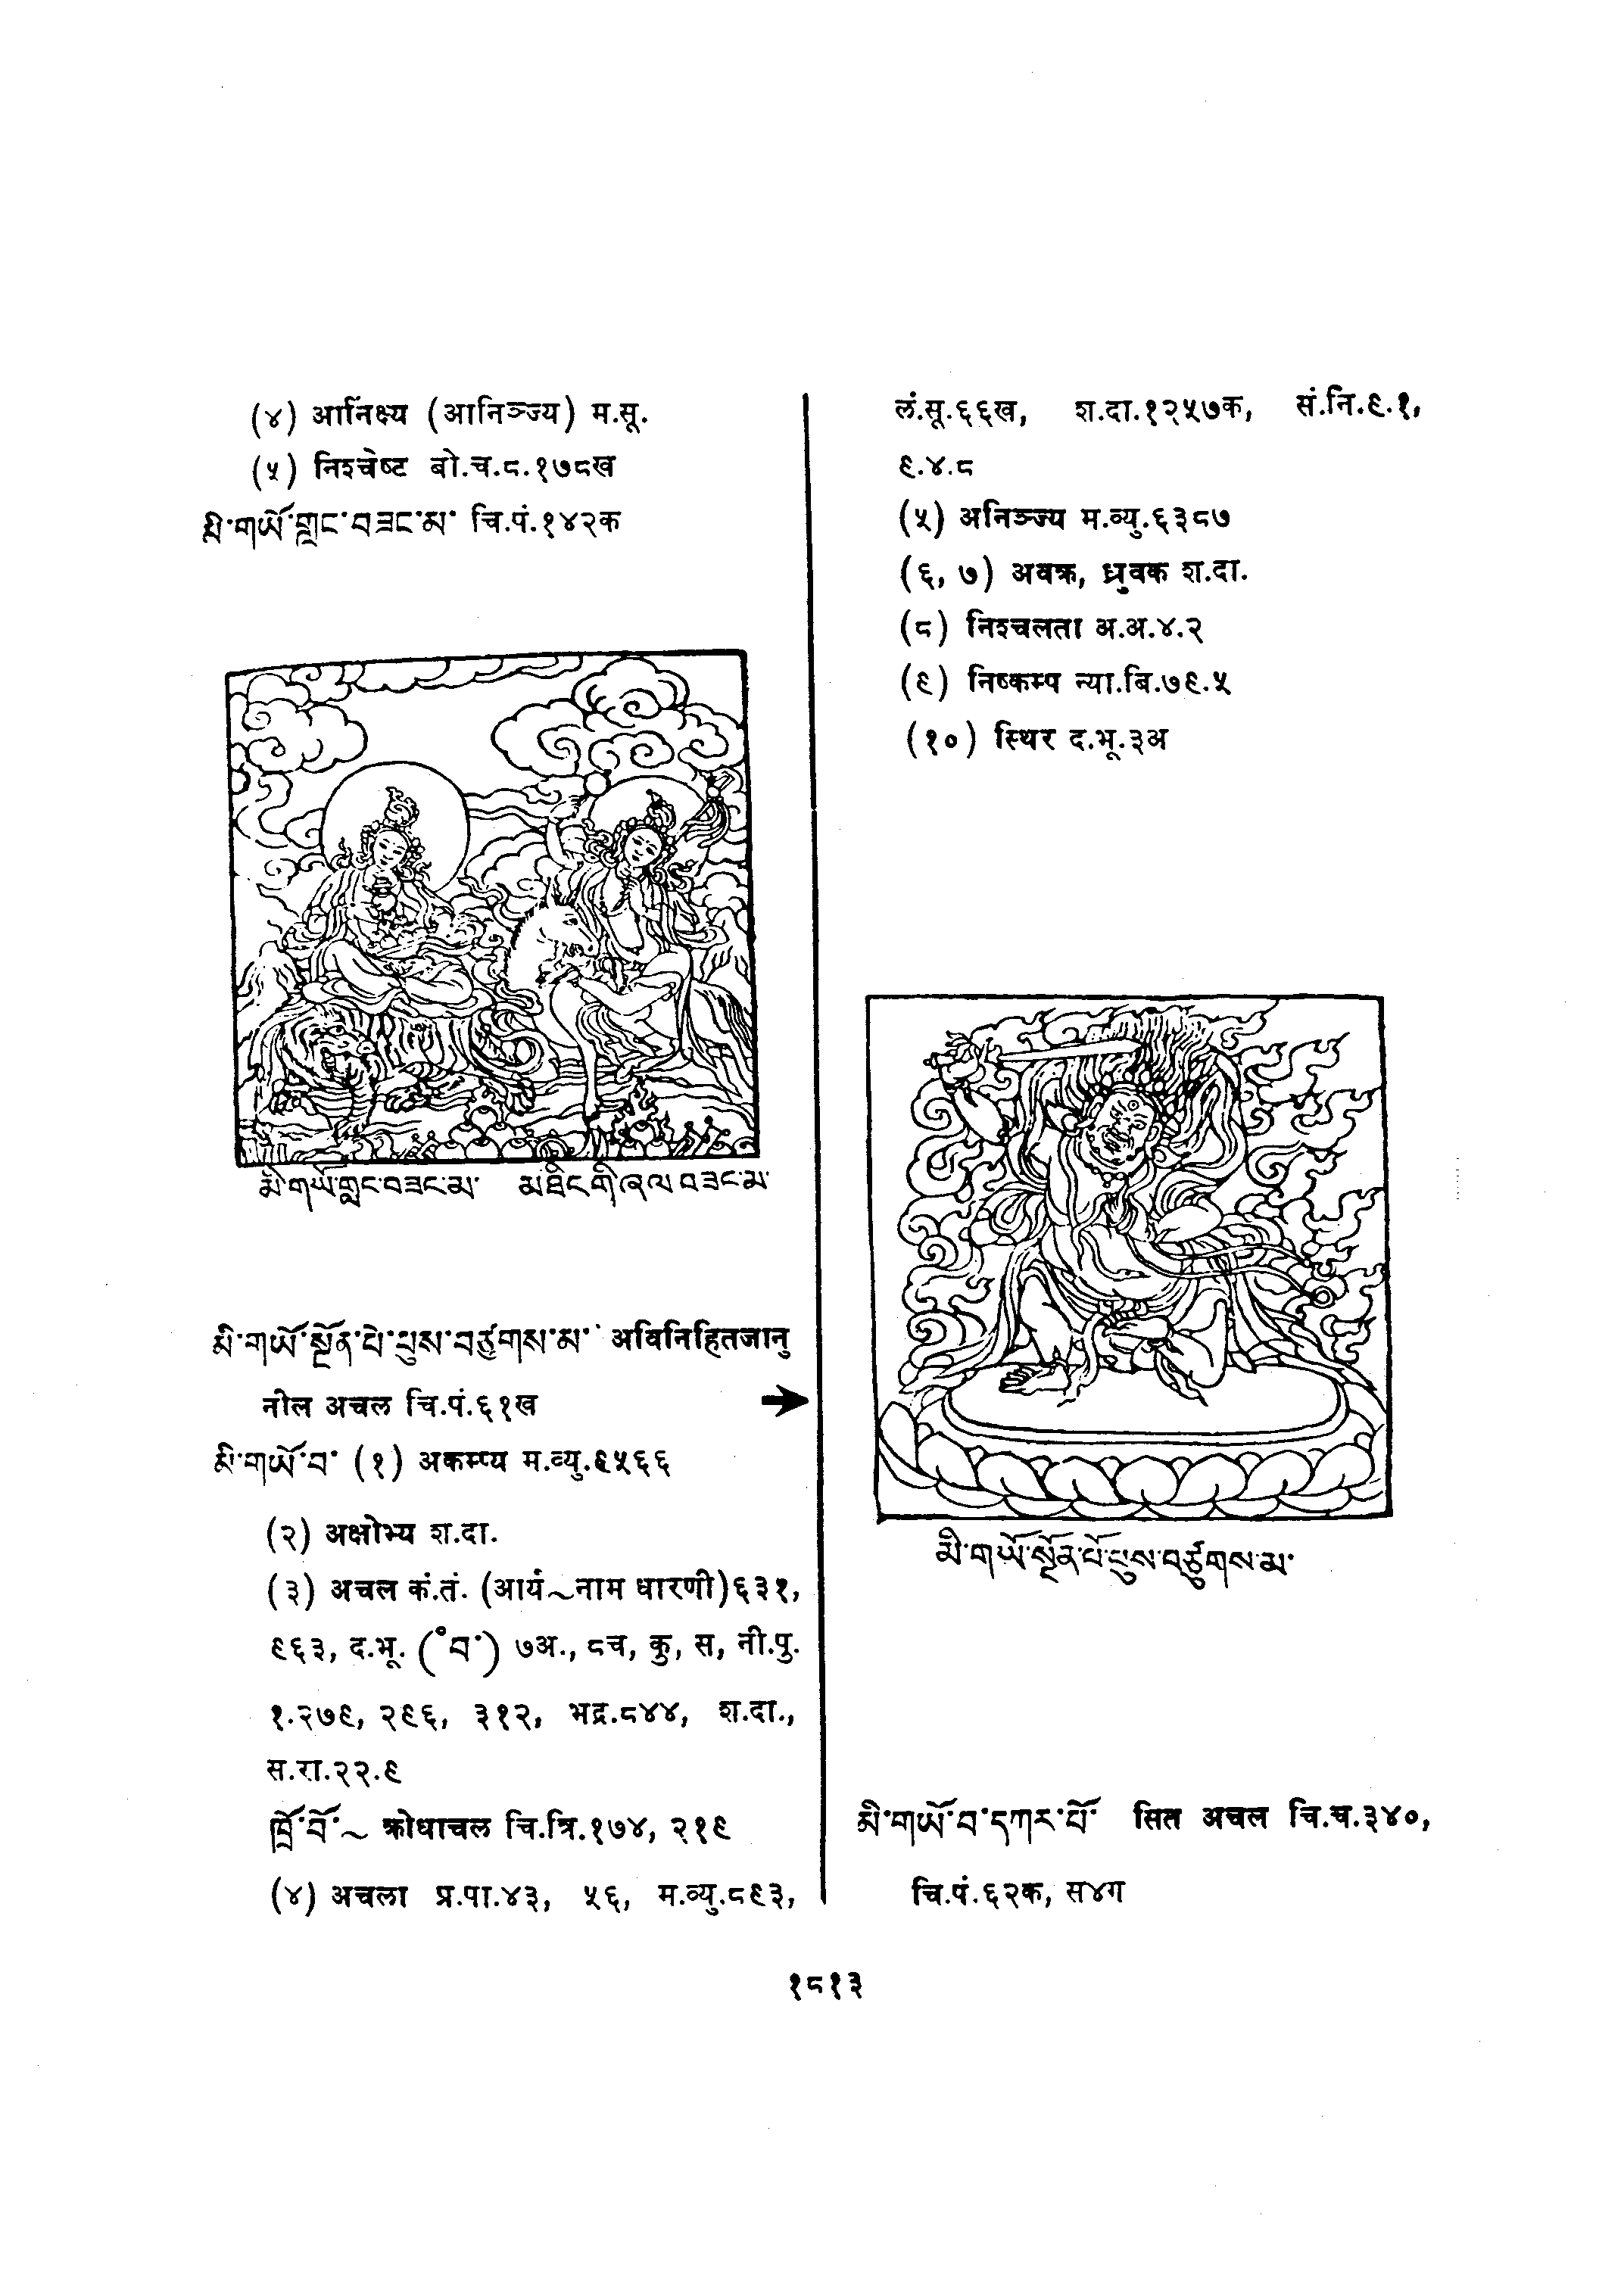 (४) आनिंक्ष्य (आनिञ्ज्य) म.सू.
(५) निश्चेष्ट बो.च.८.१७८ख
མི་གཡོ་གླང་བཟང་མ་ चि.पं.१४२क
མི་གཡོ་གླང་བཟང་མ་ མཐིང་གི་ཞལ་བཟང་མ་
མི་གཡོ་སྔོན་པོ་པུས་བཙུགས་མ་ अविनिहितजानु
नील अचल चि.पं.६१ख
མི་གཡོ་བ་ (१) अकम्प्य म.व्यु.६५६६
(२) अक्षोभ्य श.दा.
(३) अचल कं.तं. (आर्य~नाम धारणी)६३१,
९६३, द.भू. (°བ་) ७अ., ८च, कु, स, नी.पु.
१.२७९, २९६, ३१२, भद्र.८४४, श.दा.,
स.रा.२२.९
ཁྲོ་བོ་~ क्रोधाचल चि.त्रि.१७४, २१९
(४) अचला प्र.पा.४३, ५६, म.व्यु.८९३,
लं.सू.६६ख, श.दा.१२५७क, सं.नि.९.१,
९.४.८
(५) अनिञ्ज्य म.व्यु.६३८७
(६, ७) अवक्र, ध्रुवक श.दा.
(८) निश्चलता अ.अ.४.२
(९) निष्कम्प न्या.बि.७९.५
(१०) स्थिर द.भू.३अ
མི་གཡོ་སྔོན་པོ་པུས་བཙུགས་མ་
མི་གཡོ་བ་དཀར་པོ་ सित अचल चि.च.३४०,
चि.पं.६२क, स४ग
१८१३